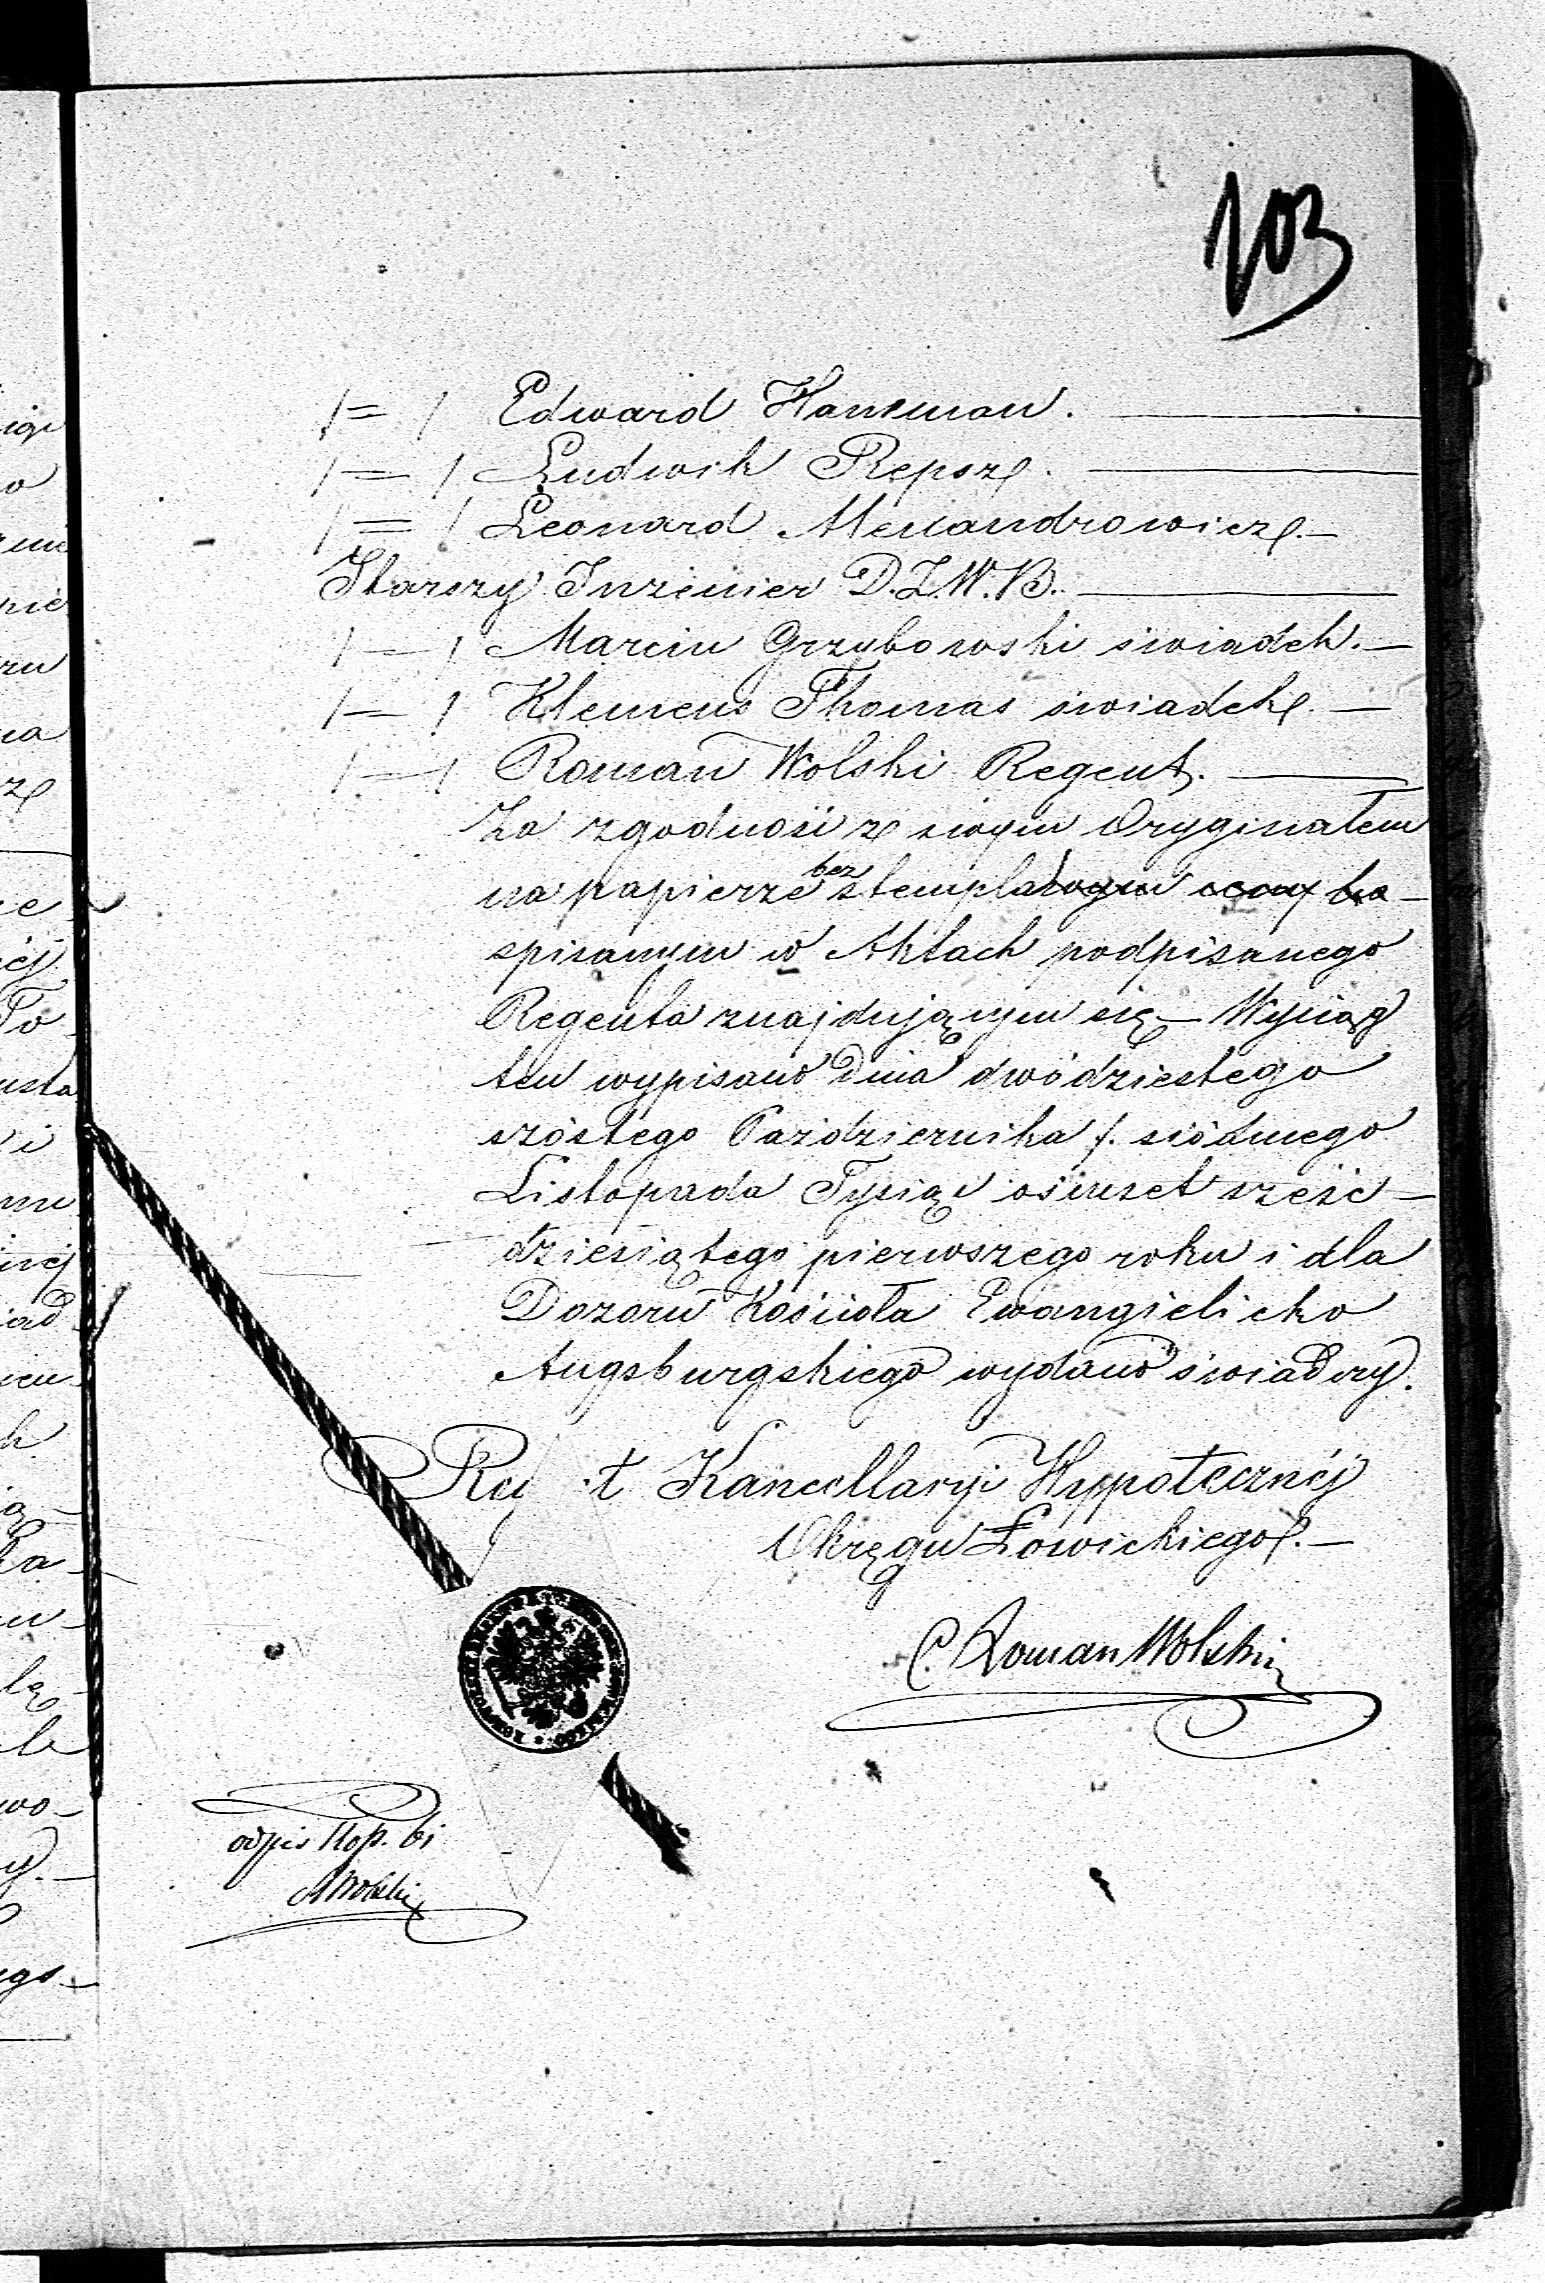 103
/=/ Edward Haneman.
/=/ Ludwik Repsz.
/=/ Leonard Alexandrowicz.—
Starszy Inzenier D.Z.W.B.
/—/ Marcin Grzybowski świadek.—
/—/ Klemens Thomas świadek.—
/—/ Roman Wolski Regent.
Za zgodność z swym Oryginałem
na papierze bez stemplatowym ceny ko-
spisanym w Aktach podpisanego
Regenta znajdującym się — Wyciąg
ten wypisano Dnia dwódziestego
szóstego Pazdziernika /. siódmego
Listopada Tysiąc ośmset sześć-
dziesiątego pierwszego roku i dla
Dozoru Kościoła Ewangielicko
Augsburgskiego wydano świadczy.
Rej t Kancellaryi Hyppotecznéj
Okręgu Łowickiego.—
C. Roman Wolski
odpis Kop. 61
Wolski